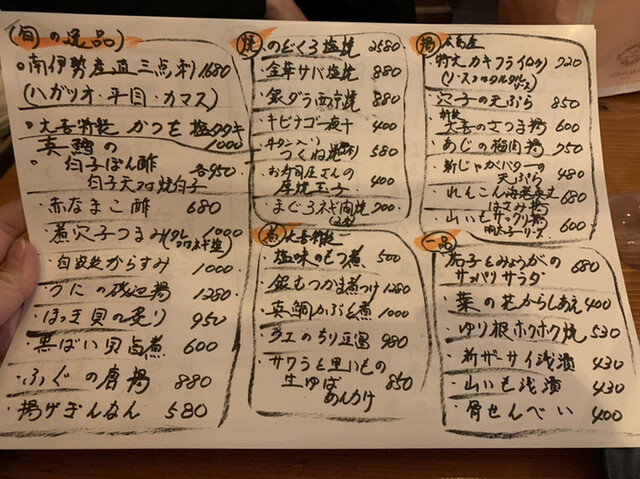 (旬の逸品)
・南伊勢産直三点刺 1680
(ハガツオ・平目・カマス)
・大吾特製 かつを 塩タタキ 1000
・真鱈の
白子ぽん酢 各950
白子天 or 焼白子
・赤なまこ酢 680
・煮穴子つまみ(タレ or ネギ塩) 1000
・自家製からすみ 1000
・うにの磯辺揚 1280
・ほっき貝の炙り 950
・黒ばい貝旨煮 600
・ふぐの唐揚 880
・揚げぎんなん 580
焼
・のどぐろ塩焼 2580
・金華サバ塩焼 880
・銀ダラ西京焼 880
・キビナゴ一夜干 400
・牛タン入り
つくね焼 580
・お寿司屋さんの
厚焼玉子 400
・まぐろネギ間焼 700
煮 大吾特製
・塩味のもつ煮 500
・銀むつかま煮つけ 1280
・真鯛かぶと煮 1000
・クエのちり豆富 980
・サワラと里いもの
生ゆば
あんかけ 850
揚 広島産
・特大カキフライ 720
(ソース or タルタルソース)
・穴子の天ぷら 850
・特製
大吾のさつま揚 600
・あじの梅肉揚 750
・新じゃがバターの
天ぷら 480
・れんこん海老真丈
はさみ揚 680
・山いもサックリ揚
明太子ソース 600
一品
・茄子とみょうがの
サッパリサラダ 680
・菜の花からしあえ 400
・ゆり根ホクホク焼 530
・新ザーサイ浅漬 430
・山いも浅漬 430
・骨せんべい 400